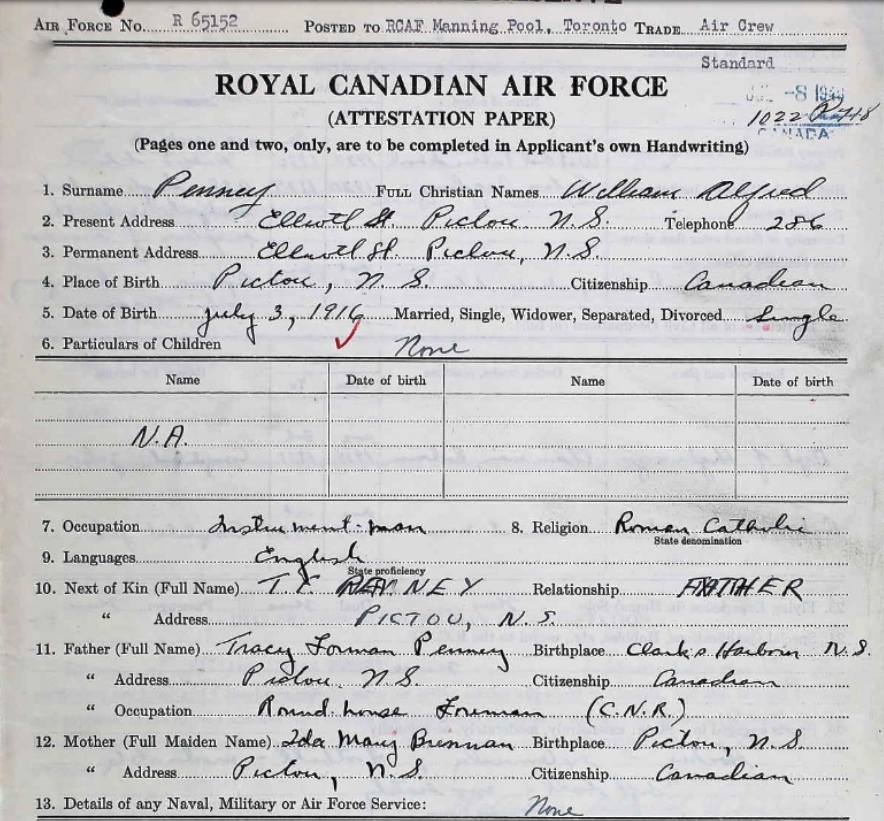 AIR FORCE NO. R 65152 POSTED TO RCAF Manning Pool, Toronto TRADE Air Crew
Standard
ROYAL CANADIAN AIR FORCE
(ATTESTATION PAPER)
1022
CANADA
(Pages one and two, only, are to be completed in Applicant's own Handwriting)
1. Surname Penney FULL Christian Names William Alfred
2. Present Address St. Pictou N.S. Telephone 286
3. Permanent Address St. Pictou, N.S.
4. Place of Birth Pictou, N.S. Citizenship Canadian
5. Date of Birth July 3, 1916 Married, Single, Widower, Separated, Divorced Single
6. Particulars of Children None
Name Date of birth Name Date of birth
N.A.
7. Occupation Instrument-man 8. Religion Roman Catholic
State denomination
9. Languages English
State proficiency
10. Next of Kin (Full Name) T. F. PENNEY Relationship FATHER
" Address PICTOU, N.S.
11. Father (Full Name) Tracy Forman Penney Birthplace Clark's Harbour N.S.
" Address Pictou N.S Citizenship Canadian
" Occupation Round-house Foreman (C.N.R.)
12. Mother (Full Maiden Name) Ida Mary Brennan Birthplace Pictou, N.S.
" Address Pictou, N.S. Citizenship Canadian
13. Details of any Naval, Military or Air Force Service: None